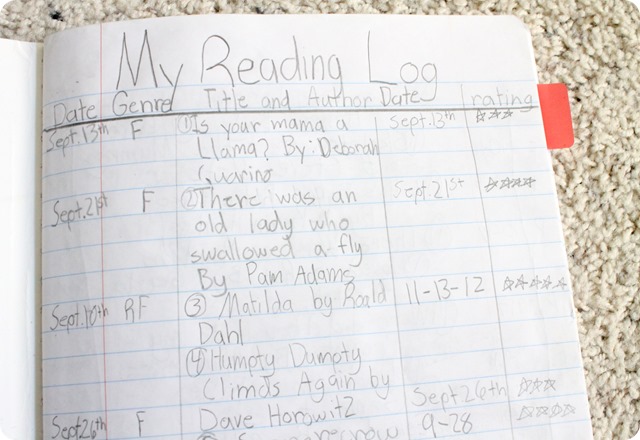 My Reading Log
Date Genre Title and Author Date rating
Sept. 13th F ① Is your mama a Sept. 13th ☆☆☆
Llama? By: Deborah
Guarino
Sept. 21st F ② There was an Sept. 21st ☆☆☆☆
old lady who
swallowed a fly
By Pam Adams
Sept. 10th RF ③ Matilda by Roald 11-13-12 ☆☆☆☆☆
Dahl
④ Humpty Dumpty
Climbs Again by Sept 26th ☆☆☆
Sept 26th F Dave Horowitz 9-28 ☆☆☆☆